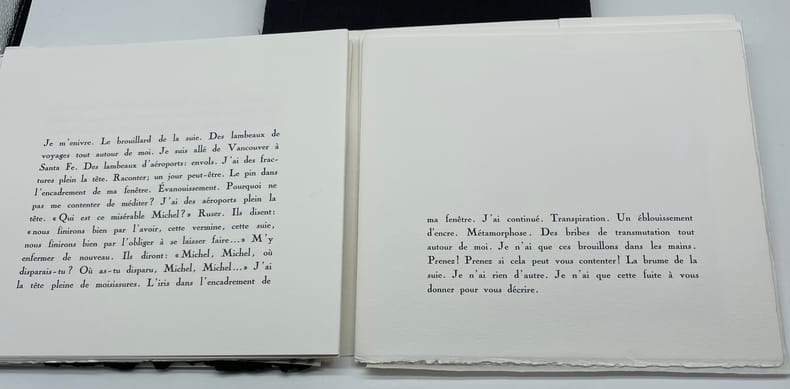 Je m'enivre. Le brouillard de la suie. Des lambeaux de
voyages tout autour de moi. Je suis allé de Vancouver à
Santa Fe. Des lambeaux d'aéroports: envols. J'ai des frac-
tures plein la tête. Raconter; un jour peut-être. Le pin dans
l'encadrement de ma fenêtre. Évanouissement. Pourquoi ne
pas me contenter de méditer? J'ai des aéroports plein la
tête. « Qui est ce misérable Michel? » Ruser. Ils disent:
« nous finirons bien par l'avoir, cette vermine, cette suie,
nous finirons bien par l'obliger à se laisser faire... » M'y
enfermer de nouveau. Ils diront: « Michel, Michel, où
disparais-tu? Où as-tu disparu, Michel, Michel... » J'ai
la tête pleine de moisissures. L'iris dans l'encadrement de
ma fenêtre. J'ai continué. Transpiration. Un éblouissement
d'encre. Métamorphose. Des bribes de transmutation tout
autour de moi. Je n'ai que ces brouillons dans les mains.
Prenez! Prenez si cela peut vous contenter! La brume de la
suie. Je n'ai rien d'autre. Je n'ai que cette fuite à vous
donner pour vous décrire.